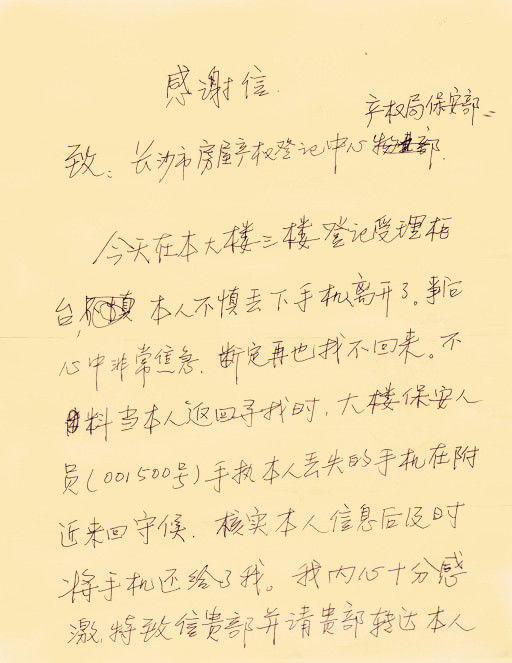 感谢信.
产权局保安部
致：长沙市房屋产权登记中心
今天在本大楼三楼登记受理柜
台，本人不慎丢下手机离开了。事后
心中非常焦急，断定再也找不回来。不
料当本人返回寻找时，大楼保安人
员(001500号)手执本人丢失的手机在附
近来回守候，核实本人信息后及时
将手机还给了我。我内心十分感
激，特致信贵部并请贵部转达本人